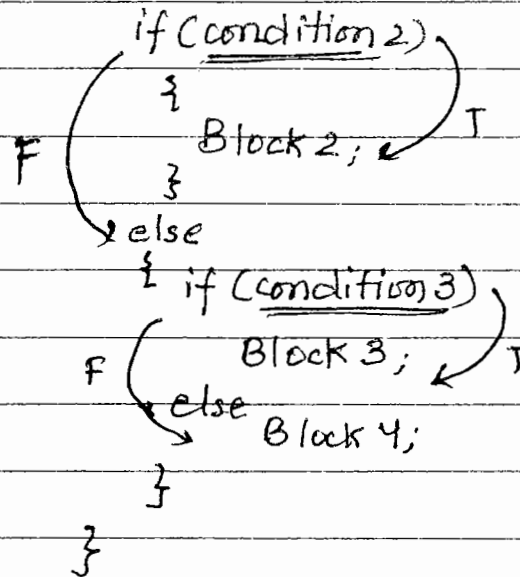 if (condition 2)
{
F
T
Block 2;
}
else
{ if (condition 3)
Block 3;
F
T
else
Block 4;
}
}